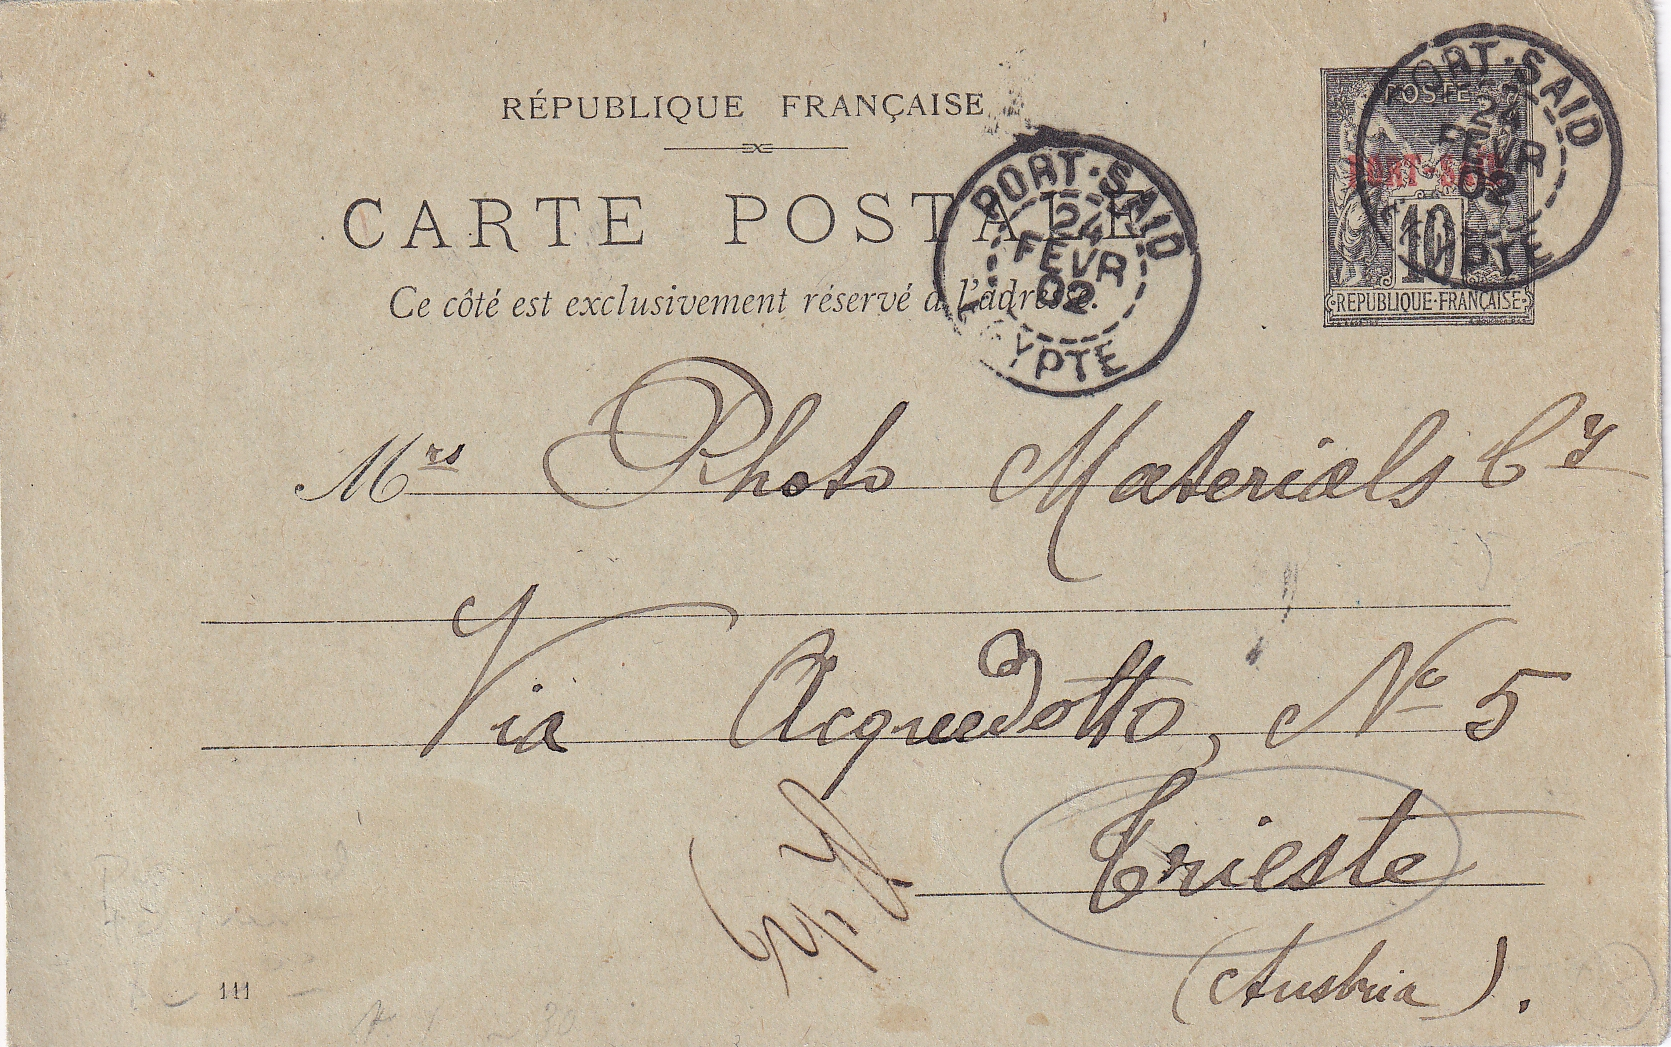 RÉPUBLIQUE FRANÇAISE
CARTE POSTALE
Ce côté est exclusivement réservé à l'adresse.
PORT-SAID
24
FEVR
02
EGYPTE
POSTES
PORT-SAID
10
REPUBLIQUE·FRANÇAISE
PORT-SAID
24
FEVR
02
EGYPTE
Mrs Photo Materials Cy
Via Acquedotto, No 5
Trieste
(Austria).
111